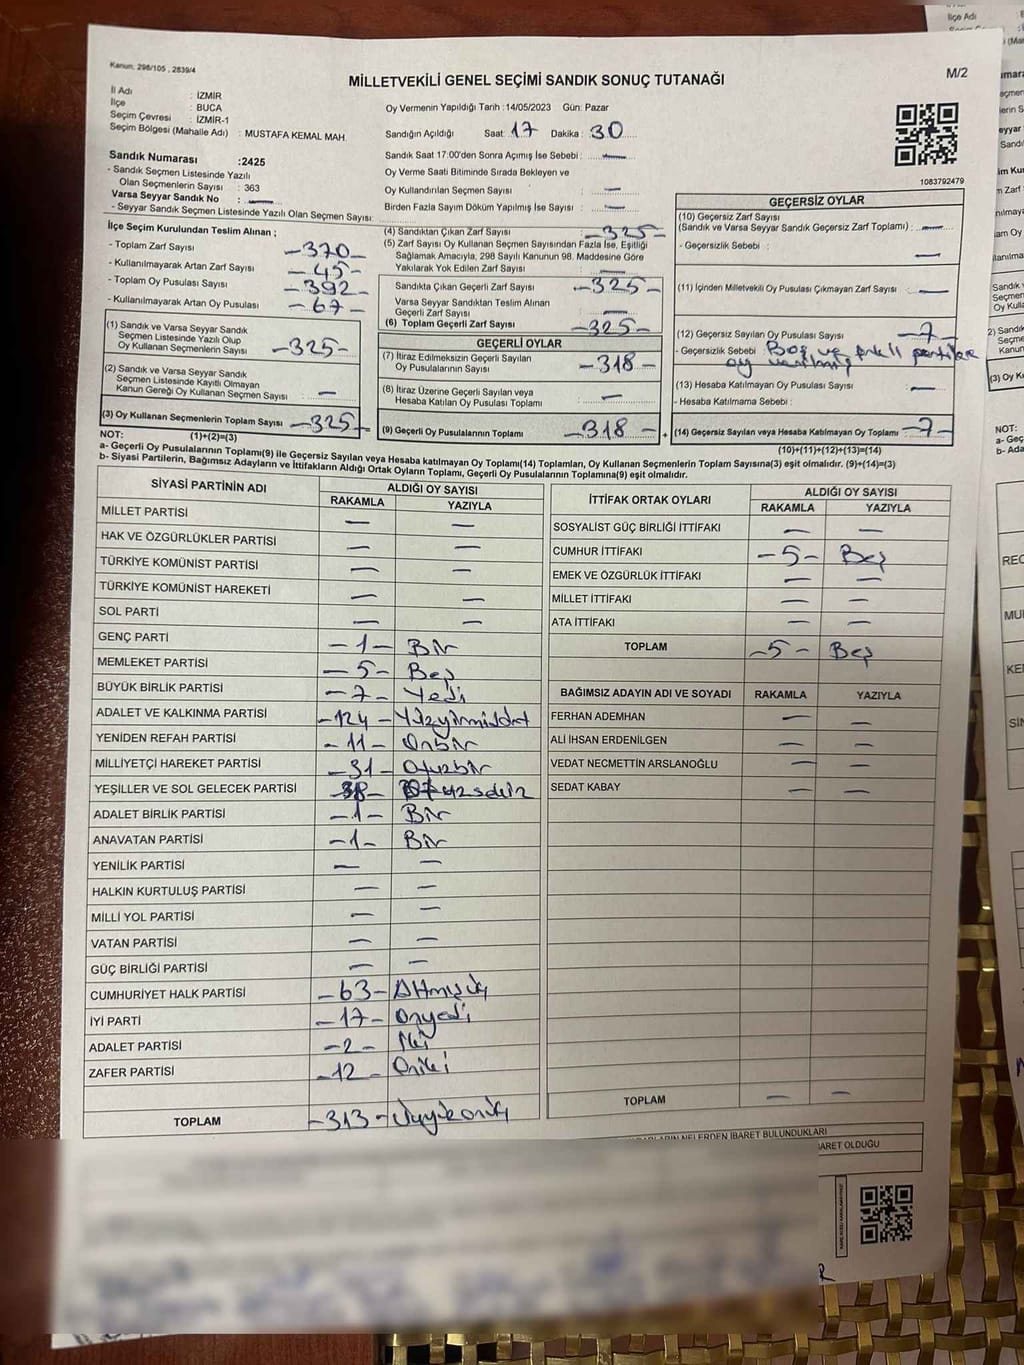 Kanun: 298/105 , 2839/4
MİLLETVEKİLİ GENEL SEÇİMİ SANDIK SONUÇ TUTANAĞI
M/2
İl Adı : İZMİR
İlçe : BUCA
Seçim Çevresi : İZMİR-1
Seçim Bölgesi (Mahalle Adı) : MUSTAFA KEMAL MAH.
Sandık Numarası :2425
- Sandık Seçmen Listesinde Yazılı
Olan Seçmenlerin Sayısı : 363
Varsa Seyyar Sandık No : —
- Seyyar Sandık Seçmen Listesinde Yazılı Olan Seçmen Sayısı:
Oy Vermenin Yapıldığı Tarih : 14/05/2023 Gün: Pazar
Sandığın Açıldığı Saat 17 Dakika : 30
Sandık Saat 17:00'den Sonra Açımış İse Sebebi : —
Oy Verme Saati Bitiminde Sırada Bekleyen ve
Oy Kullandırılan Seçmen Sayısı : —
Birden Fazla Sayım Döküm Yapılmış İse Sayısı : —
1083792479
İlçe Seçim Kurulundan Teslim Alınan ;
- Toplam Zarf Sayısı -370-
- Kullanılmayarak Artan Zarf Sayısı -45-
- Toplam Oy Pusulası Sayısı -392-
- Kullanılmayarak Artan Oy Pusulası -67-
(1) Sandık ve Varsa Seyyar Sandık
Seçmen Listesinde Yazılı Olup
Oy Kullanan Seçmenlerin Sayısı : -325-
(2) Sandık ve Varsa Seyyar Sandık
Seçmen Listesinde Kayıtlı Olmayan
Kanun Gereği Oy Kullanan Seçmen Sayısı : —
(3) Oy Kullanan Seçmenlerin Toplam Sayısı -325-
(1)+(2)=(3)
(4) Sandıktan Çıkan Zarf Sayısı : -325-
(5) Zarf Sayısı Oy Kullanan Seçmen Sayısından Fazla İse, Eşitliği
Sağlamak Amacıyla, 298 Sayılı Kanunun 98. Maddesine Göre
Yakılarak Yok Edilen Zarf Sayısı : —
Sandıkta Çıkan Geçerli Zarf Sayısı : -325-
Varsa Seyyar Sandıktan Teslim Alınan
Geçerli Zarf Sayısı : —
(6) Toplam Geçerli Zarf Sayısı -325-
GEÇERLİ OYLAR
(7) İtiraz Edilmeksizin Geçerli Sayılan
Oy Pusulalarının Sayısı : -318-
(8) İtiraz Üzerine Geçerli Sayılan veya
Hesaba Katılan Oy Pusulası Toplamı : —
(9) Geçerli Oy Pusulalarının Toplamı -318- +
GEÇERSİZ OYLAR
(10) Geçersiz Zarf Sayısı
(Sandık ve Varsa Seyyar Sandık Geçersiz Zarf Toplamı) : —
- Geçersizlik Sebebi : —
(11) İçinden Milletvekili Oy Pusulası Çıkmayan Zarf Sayısı : —
(12) Geçersiz Sayılan Oy Pusulası Sayısı -7-
- Geçersizlik Sebebi : Boş ve farklı partilere
oy verilmiş
(13) Hesaba Katılmayan Oy Pusulası Sayısı : —
- Hesaba Katılmama Sebebi :
(14) Geçersiz Sayılan veya Hesaba Katılmayan Oy Toplamı -7-
(10)+(11)+(12)+(13)=(14)
NOT:
a- Geçerli Oy Pusulalarının Toplamı(9) ile Geçersiz Sayılan veya Hesaba katılmayan Oy Toplamı(14) Toplamları, Oy Kullanan Seçmenlerin Toplam Sayısına(3) eşit olmalıdır. (9)+(14)=(3)
b- Siyasi Partilerin, Bağımsız Adayların ve İttifakların Aldığı Ortak Oyların Toplamı, Geçerli Oy Pusulalarının Toplamına(9) eşit olmalıdır.
SİYASİ PARTİNİN ADI ALDIĞI OY SAYISI
RAKAMLA YAZIYLA
MİLLET PARTİSİ — —
HAK VE ÖZGÜRLÜKLER PARTİSİ — —
TÜRKİYE KOMÜNİST PARTİSİ — —
TÜRKİYE KOMÜNİST HAREKETİ — —
SOL PARTİ — —
GENÇ PARTİ -1- Bir
MEMLEKET PARTİSİ -5- Beş
BÜYÜK BİRLİK PARTİSİ -7- Yedi
ADALET VE KALKINMA PARTİSİ -124- Yüzyirmidört
YENİDEN REFAH PARTİSİ -11- Onbir
MİLLİYETÇİ HAREKET PARTİSİ -31- Otuzbir
YEŞİLLER VE SOL GELECEK PARTİSİ -38- Otuzsekiz
ADALET BİRLİK PARTİSİ -1- Bir
ANAVATAN PARTİSİ -1- Bir
YENİLİK PARTİSİ — —
HALKIN KURTULUŞ PARTİSİ — —
MİLLİ YOL PARTİSİ — —
VATAN PARTİSİ — —
GÜÇ BİRLİĞİ PARTİSİ — —
CUMHURİYET HALK PARTİSİ -63- Altmışüç
İYİ PARTİ -17- Onyedi
ADALET PARTİSİ -2- İki
ZAFER PARTİSİ -12- Oniki
TOPLAM -313- Üçyüzonüç
İTTİFAK ORTAK OYLARI ALDIĞI OY SAYISI
RAKAMLA YAZIYLA
SOSYALİST GÜÇ BİRLİĞİ İTTİFAKI — —
CUMHUR İTTİFAKI -5- Beş
EMEK VE ÖZGÜRLÜK İTTİFAKI — —
MİLLET İTTİFAKI — —
ATA İTTİFAKI — —
TOPLAM -5- Beş
BAĞIMSIZ ADAYIN ADI VE SOYADI RAKAMLA YAZIYLA
FERHAN ADEMHAN — —
ALİ İHSAN ERDENİLGEN — —
VEDAT NECMETTİN ARSLANOĞLU — —
SEDAT KABAY — —
TOPLAM — —
NELERDEN İBARET BULUNDUKLARI
İBARET OLDUĞU